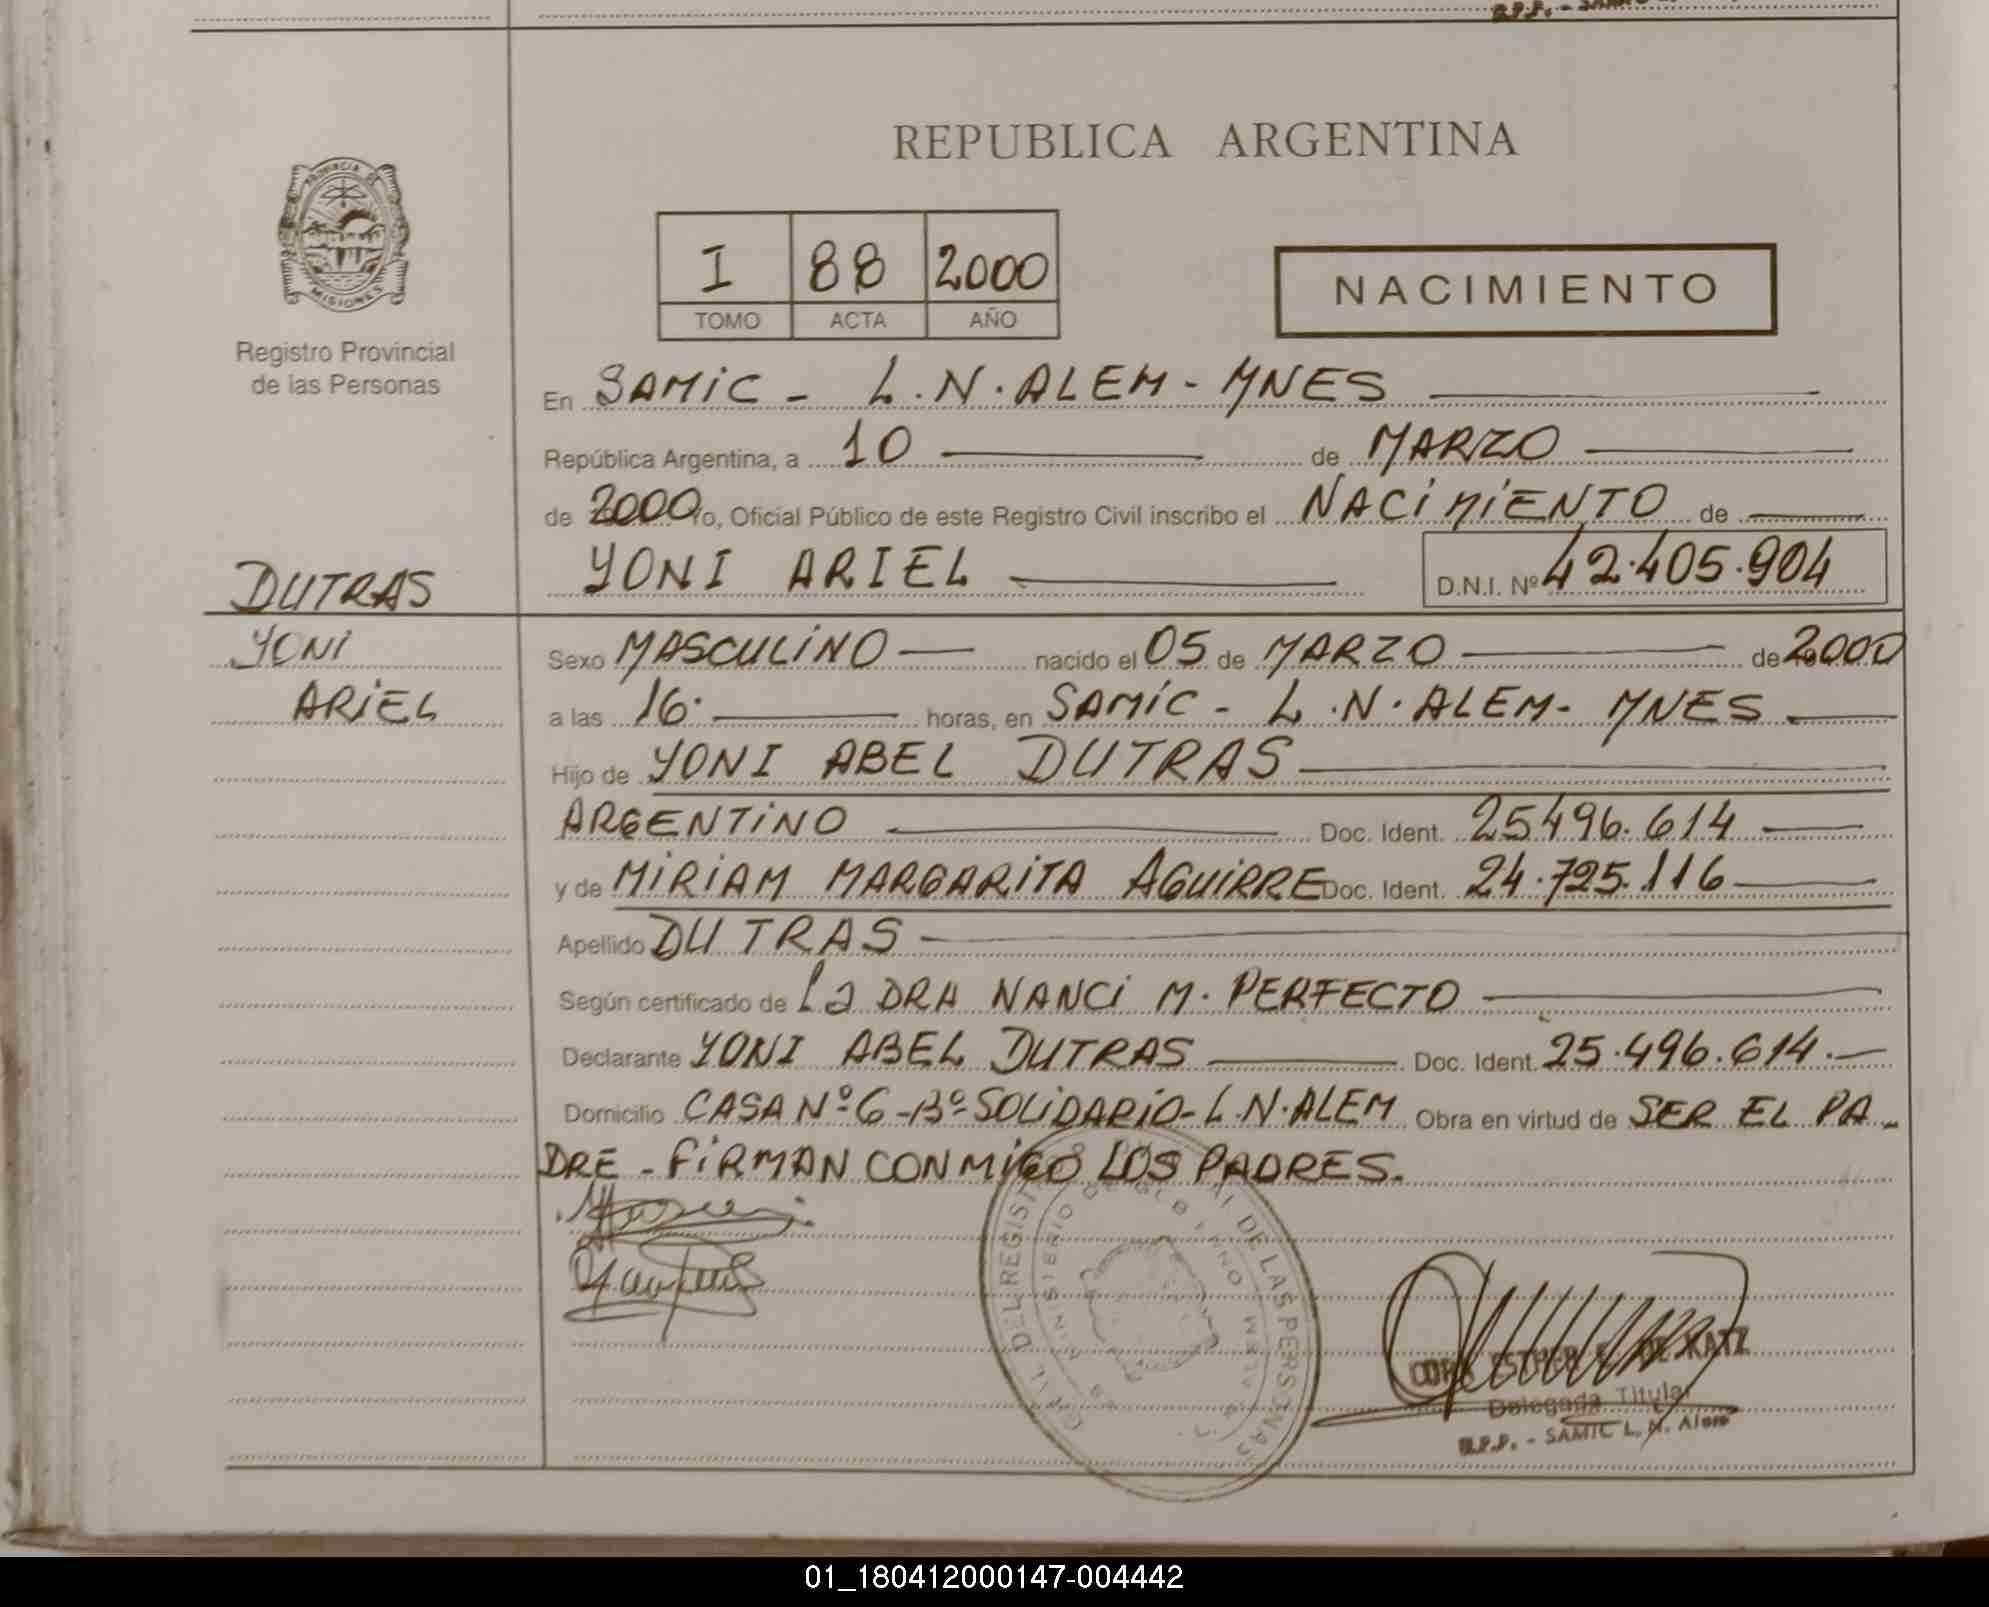 REPUBLICA ARGENTINA
PROVINCIA DE
MISIONES
Registro Provincial
de las Personas
I 88 2000
TOMO ACTA AÑO
NACIMIENTO
En SAMiC - L.N.ALEM - MNES
República Argentina, a 10 de MARZO
de 2000 Yo, Oficial Público de este Registro Civil inscribo el NACiMiENTO de
YONI ARIEL D.N.I. Nº 42.405.904
DUTRAS
YONi
ARiEL
Sexo MASCULiNO nacido el 05 de MARZO de 2000
a las 16. horas, en SAMiC - L.N.ALEM - MNES
Hijo de YONI ABEL DUTRAS
ARGENTiNO Doc. Ident. 25.496.614
y de MiRiAM MARGARiTA AGUiRRE Doc. Ident. 24.725.116
Apellido DUTRAS
Según certificado de La DRA NANCi M. PERFECTO
Declarante YONI ABEL DUTRAS Doc. Ident. 25.496.614.
Domicilio CASA Nº 6 - Bº SOLiDARiO - L.N.ALEM Obra en virtud de SER EL PA-
DRE - FiRMAN CONMiGO LOS PADRES.
DE LAS PERSONAS
ESTHER DE KATZ
Delegada Titular
R.P.P. - SAMIC L. N. Alem
01_180412000147-004442